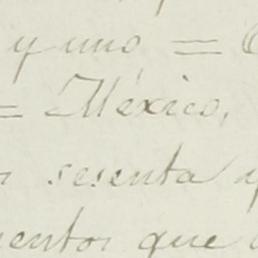 y uno, =
= México,
sesenta y
entos que